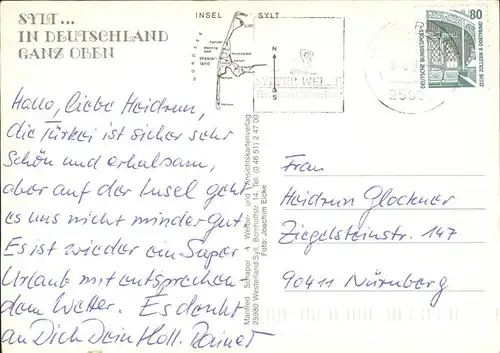 SYLT...
IN DEUTSCHLAND
GANZ OBEN
INSEL SYLT
Hallo, liebe Heidrun,
die Türkei ist sicher sehr
schön und erholsam,
aber auf der Insel geht
es uns nicht minder gut.
Es ist wieder ein Super
Urlaub mit entsprechen-
dem Wetter. Es denkt
an Dich Dein Holl. Rainer
Manfred Schaper · Werbe- und Ansichtskartenverlag
25980 Westerland/Sylt, Bomhoffstr. 14, Tel. (0 46 51) 2 47 00
Foto: Joachim Eicke
N
S
SYLTER WELLE
80
DEUTSCHE BUNDESPOST
ZECHE ZOLLERN II DORTMUND
Frau
Heidrun Glockner
Ziegelsteinstr. 147
90411 Nürnberg